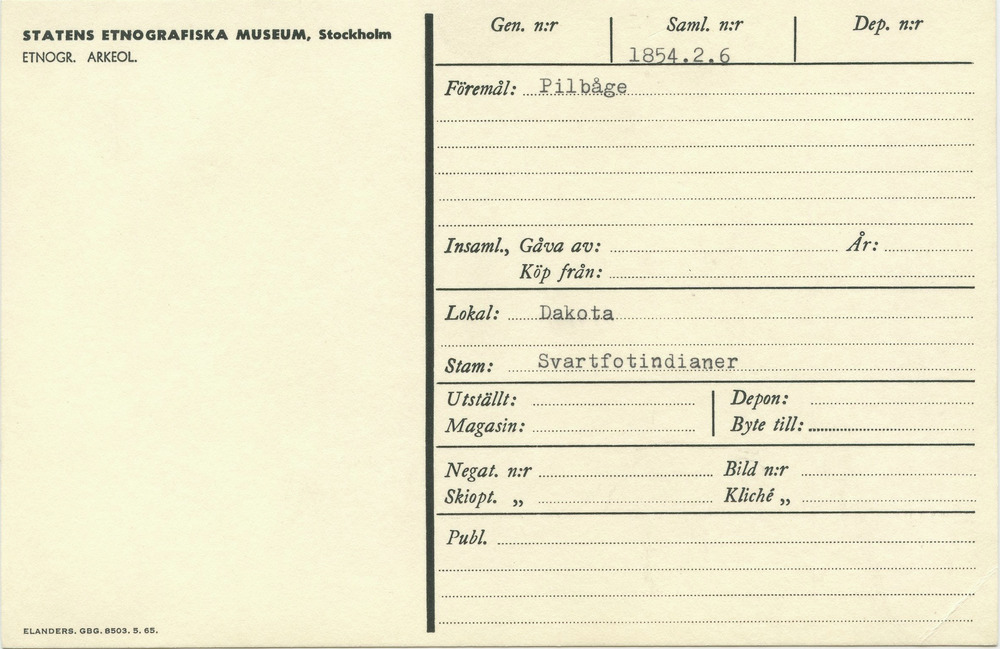 STATENS ETNOGRAFISKA MUSEUM, Stockholm
ETNOGR. ARKEOL.
Gen. n:r Saml. n:r Dep. n:r
1854.2.6
Föremål: Pilbåge
Insaml., Gåva av: År:
Köp från:
Lokal: Dakota
Stam: Svartfotindianer
Utställt: Depon:
Magasin: Byte till:
Negat. n:r Bild n:r
Skiopt. „ Kliché „
Publ.
ELANDERS. GBG. 8503. 5. 65.